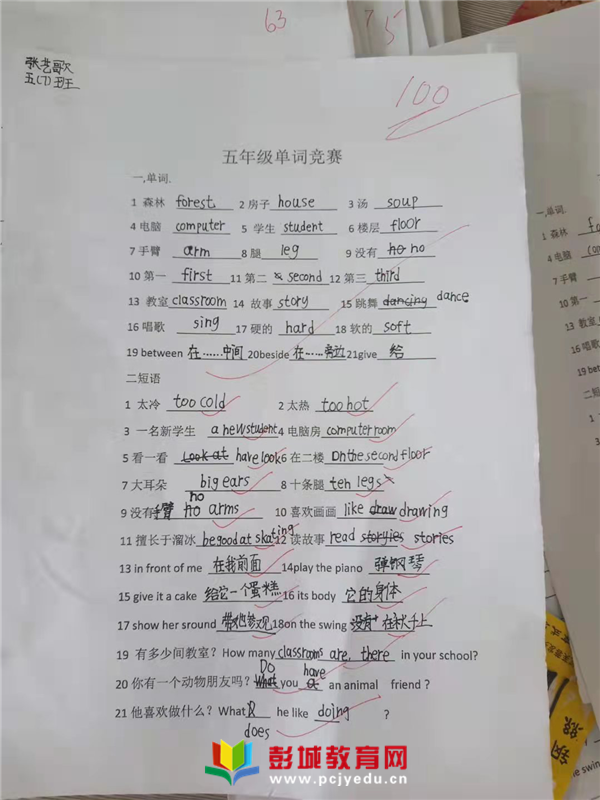 63
75
张艺歌
五(7)班
100
五年级单词竞赛
一,单词.
1 森林 forest 2 房子 house 3 汤 soup
4 电脑 computer 5 学生 student 6 楼层 floor
7 手臂 arm 8 腿 leg 9 没有 no no
10 第一 first 11 第二 second 12 第三 third
13 教室 classroom 14 故事 story 15 跳舞 dancing dance
16 唱歌 sing 17 硬的 hard 18 软的 soft
19 between 在……中间 20beside 在……旁边 21give 给
二短语
1 太冷 too cold 2 太热 too hot
3 一名新学生 a new student 4 电脑房 computer room
5 看一看 Look at have look 6 在二楼 On the second floor
7 大耳朵 big ears 8 十条腿 ten legs
9 没有手臂 no no arms 10 喜欢画画 like draw drawing
11 擅长于溜冰 be good at skating 12 读故事 read storyies stories
13 in front of me 在我前面 14play the piano 弹钢琴
15 give it a cake 给它一个蛋糕 16 its body 它的身体
17 show her sround 带她参观 18on the swing 在秋千上
19 有多少间教室? How many classrooms are there in your school?
20 你有一个动物朋友吗? What Do you have an animal friend ?
21 他喜欢做什么? What does he like doing ?
彭城教育网
www.pcjyedu.cn
一,单词.
1 森林
4 电脑
7 手臂
10 第一
13 教室
16唱歌
19 betwee
二短语
1 太冷
3 一名
5 看一
7 大
9 没